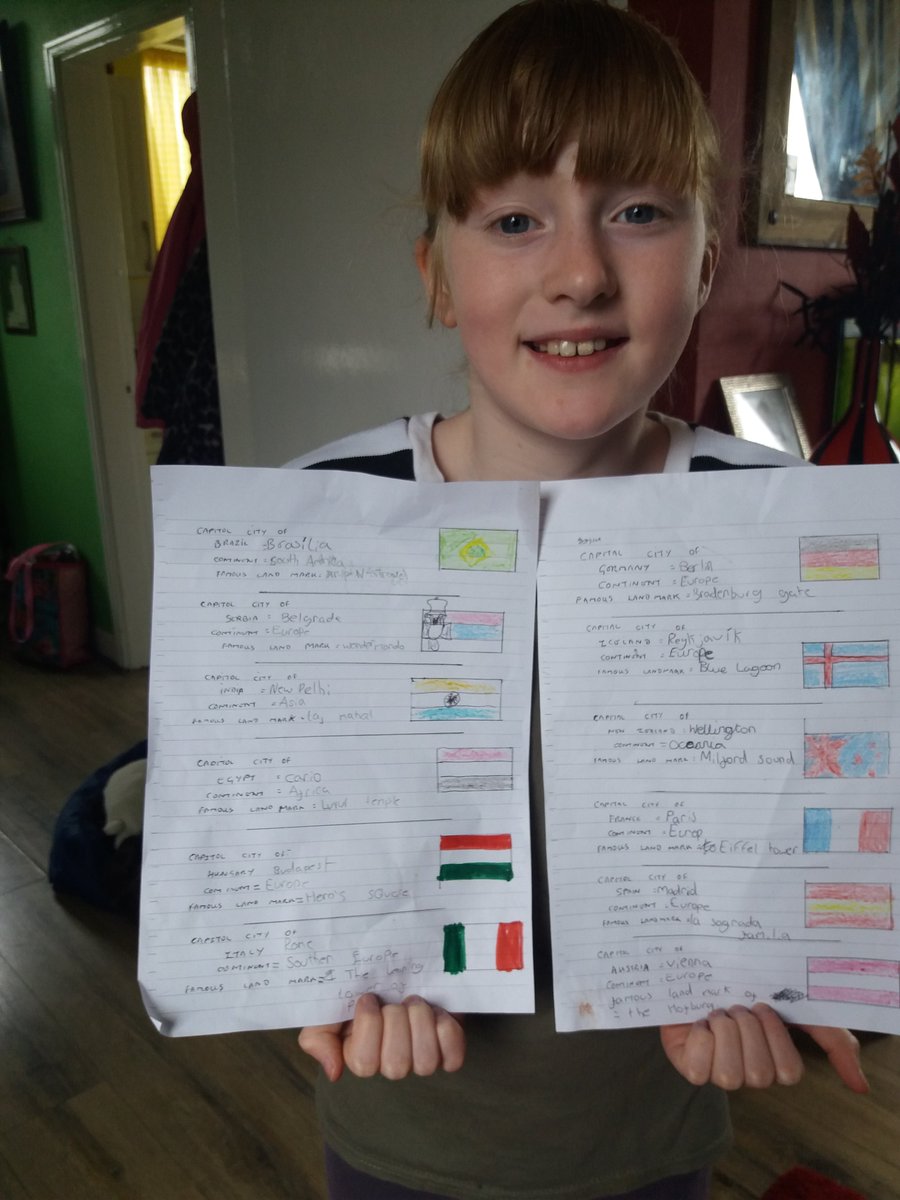 CAPITOL CITY OF
BRAZIL = Brasília
CONTINENT = South America
FAMOUS LAND MARK =
CAPITOL CITY OF
SERBIA = Belgrade
CONTINUM = Europe
FAMOUS LAND MARK =
CAPITAL CITY OF
INDIA = New Delhi
CONTINENT = Asia
FAMOUS LAND MARK = taj mahal
CAPITOL CITY OF
EGYPT = Cario
CONTINENT = Africa
FAMOUS LAND MARK = temple
CAPITOL CITY OF
HUNGARY Budapest
CONTINUM = Europe
FAMOUS LAND MARK = Hero's Square
CAPITOL CITY OF
ITALY Rome
CONTINENT = Southen Europe
FAMOUS LAND MARK = The
CAPITAL CITY OF
GERMANY = Berlin
CONTINENT = Europe
FAMOUS LAND MARK = Bradenburg gate
CAPITAL CITY OF
ICELAND = Reykjavík
CONTINENT = Europe
FAMOUS LANDMARK = Blue Lagoon
CAPITAL CITY OF
NEW ZEALAND = Wellington
CONTINENT = Oceania
FAMOUS LAND MARK = Milford sound
CAPITAL CITY OF
FRANCE = Paris
CONTINENT = Europ
FAMOUS LAND MARK = Eiffel tower
CAPITAL CITY OF
SPAIN = Madrid
CONTINENT = Europe
FAMOUS LANDMARK = la sagrada
familia
CAPITAL CITY OF
AUSTRIA = Vienna
CONTINENT = Europe
famous land mark of
= the Hofburg